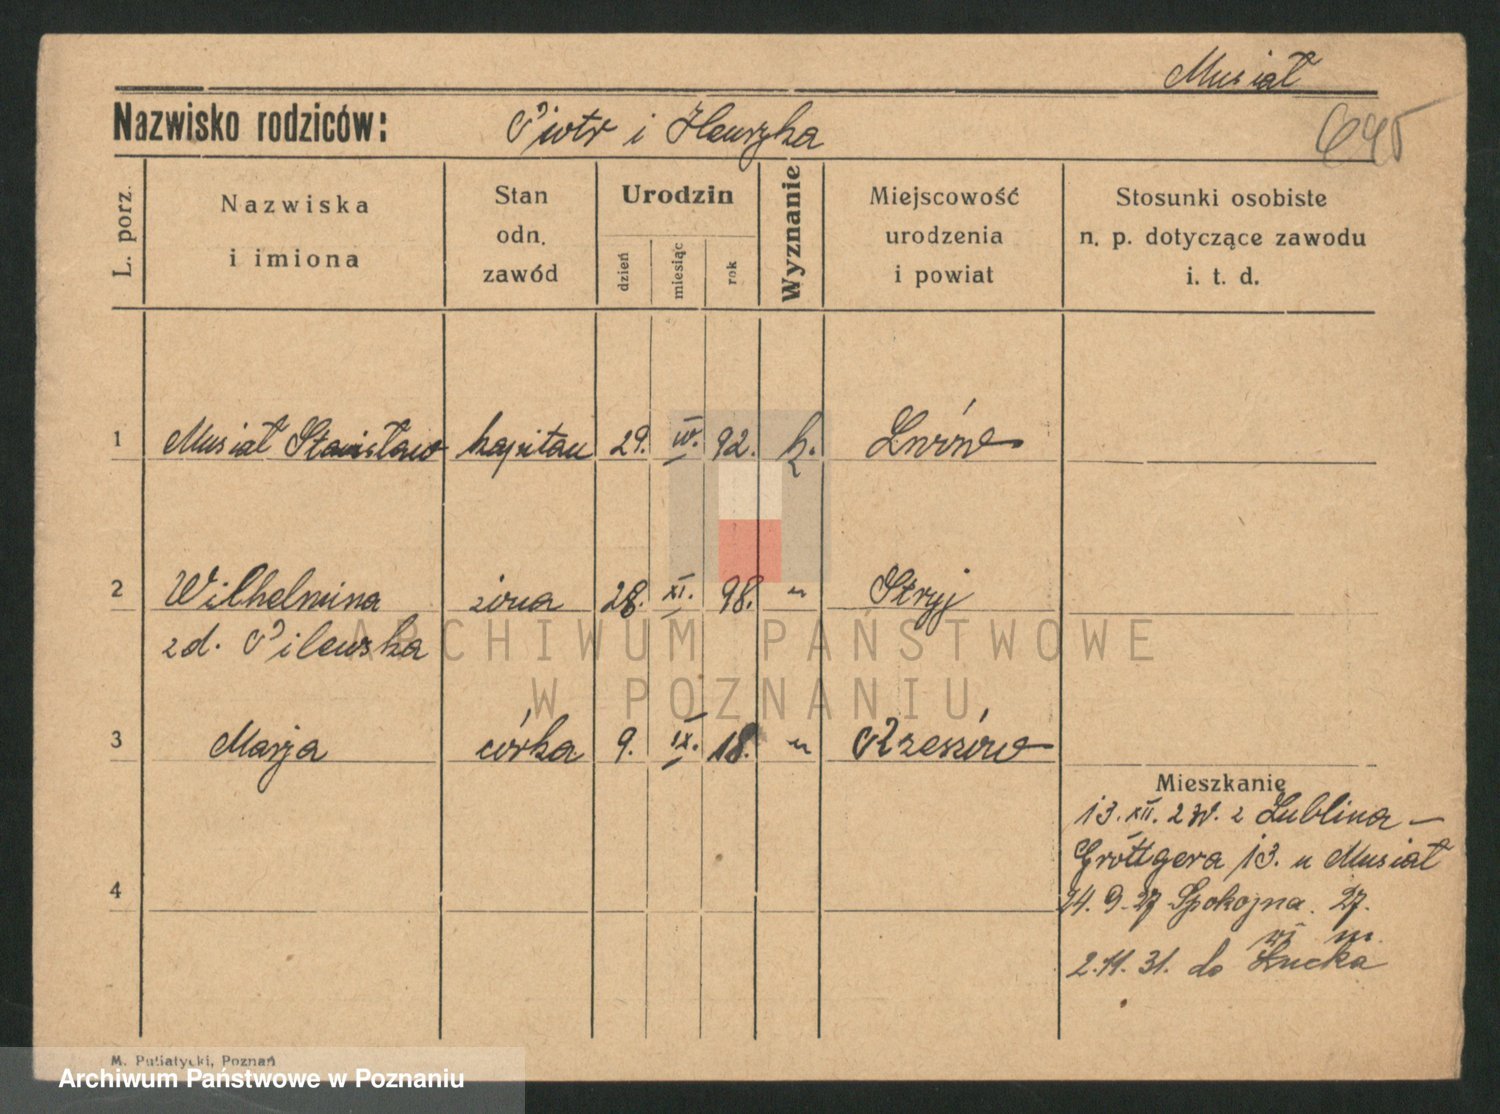 Musiał
Nazwisko rodziców: Piotr i
L. porz.
Nazwiska
i imiona
Stan
odn.
zawód
Urodzin
dzień
miesiąc
rok
Wyznanie
Miejscowość
urodzenia
i powiat
Stosunki osobiste
n. p. dotyczące zawodu
i. t. d.
1 Musiał Stanisław kapitan 29. IV. 92. k. Lwów
2 Wilhelmina żona 28. XI. 98. " Stryj
zd. Pilewska
ARCHIWUM PAŃSTWOWE
W POZNANIU
3 Marja córka 9. IX. 18. " Rzeszów
Mieszkanie
13. XII. z Lublina –
Gröttgera 13. u Musiał
4
24. 9. 27 Spokojna 27.
2. 11. 31. do Łucka
M. Putiatycki, Poznań
Archiwum Państwowe w Poznaniu